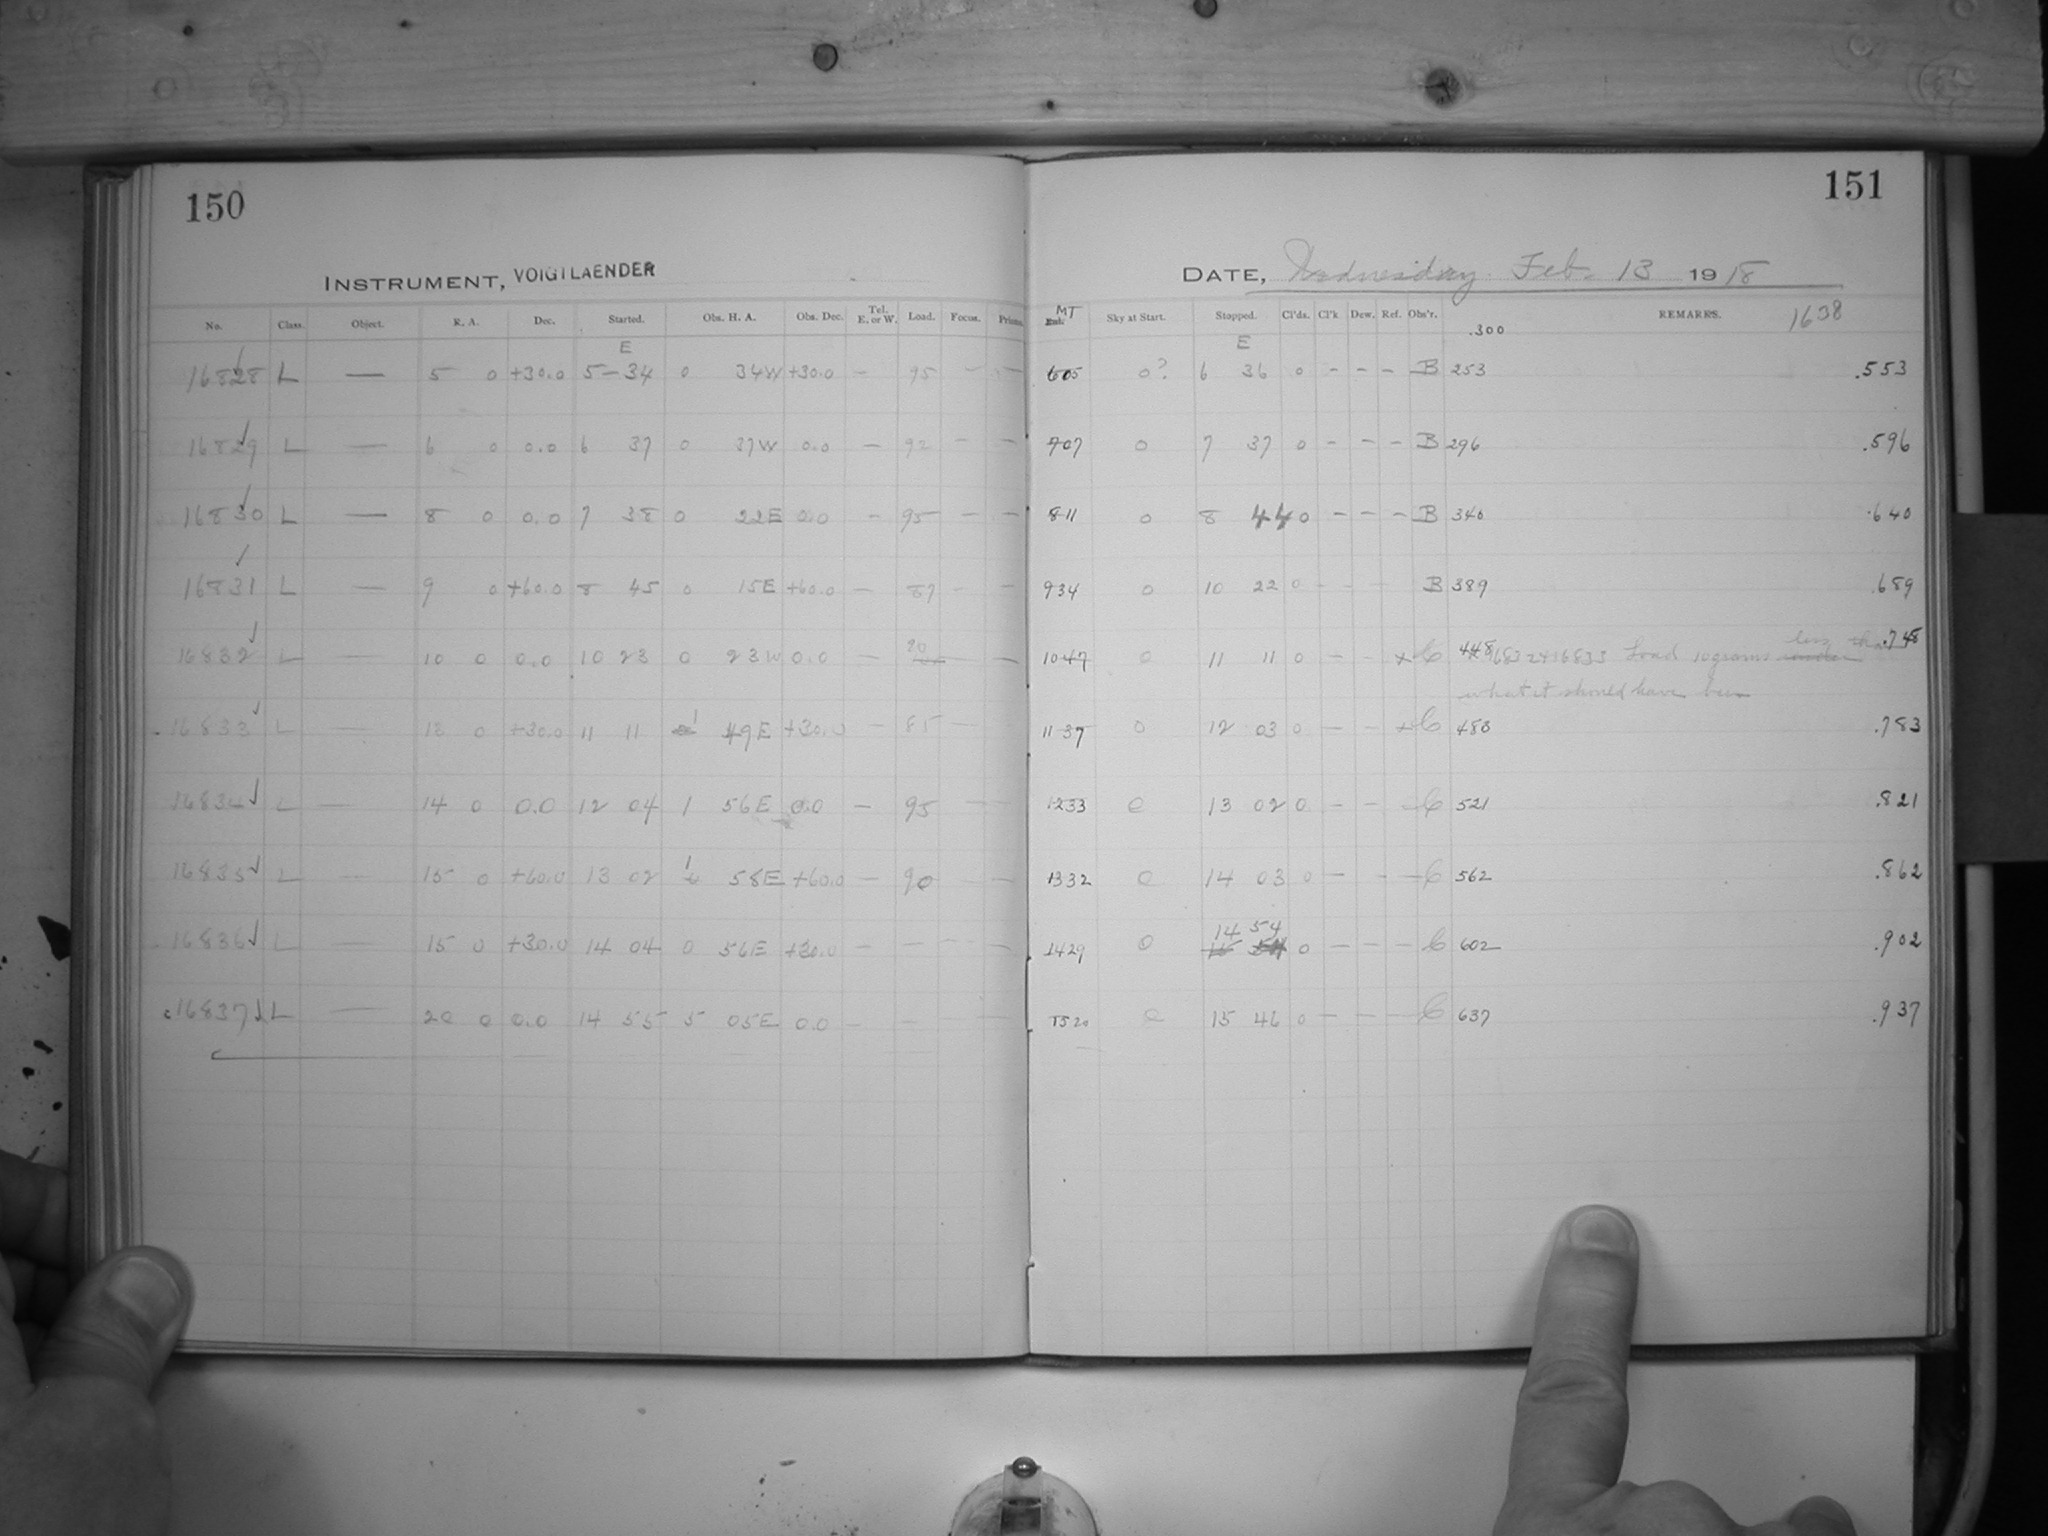 150
151
INSTRUMENT, VOIGTLAENDER
DATE, Wednesday Feb. 13 1918
No. Class. Object. R. A. Dec. Started. Obs. H. A. Obs. Dec. Tel. E. or W. Load. Focus. Prisms. MT Sky at Start. Stopped. Cl'ds. Cl'k Dew. Ref. Obs'r. .300 REMARKS. 1638
E E
16828 L — 5 0 +30.0 5-34 0 34W +30.0 - 95 - - 605 0? 6 36 0 - - - B 253 .553
16829 L — 6 0 0.0 6 37 0 37W 0.0 - 92 - - 707 0 7 37 0 - - - B 296 .596
16830 L — 8 0 0.0 7 38 0 22E 0.0 - 95 - - 811 0 8 44 0 - - - B 340 .640
16831 L — 9 0 +60.0 8 45 0 15E +60.0 - 87 - - 934 0 10 22 0 - - - B 389 .689
16832 L — 10 0 0.0 10 23 0 23W 0.0 - 90 - - 1047 0 11 11 0 - - + C 448 16832+16833 Load 10 grams less than .748
what it should have been
16833 L — 13 0 +30.0 11 11 1 49E +30.0 - 85 - - 1137 0 12 03 0 - - + C 483 .783
16834 L — 14 0 0.0 12 04 1 56E 0.0 - 95 - - 1233 0 13 02 0 - - - C 521 .821
16835 L — 15 0 +60.0 13 02 1 58E +60.0 - 90 1332 0 14 03 0 - - - C 562 .862
16836 L — 15 0 +30.0 14 04 0 56E +30.0 - - - - 1429 0 14 54 0 - - - C 602 .902
16837 L — 20 0 0.0 14 55 5 05E 0.0 - - - - 1520 0 15 46 0 - - - C 637 .937